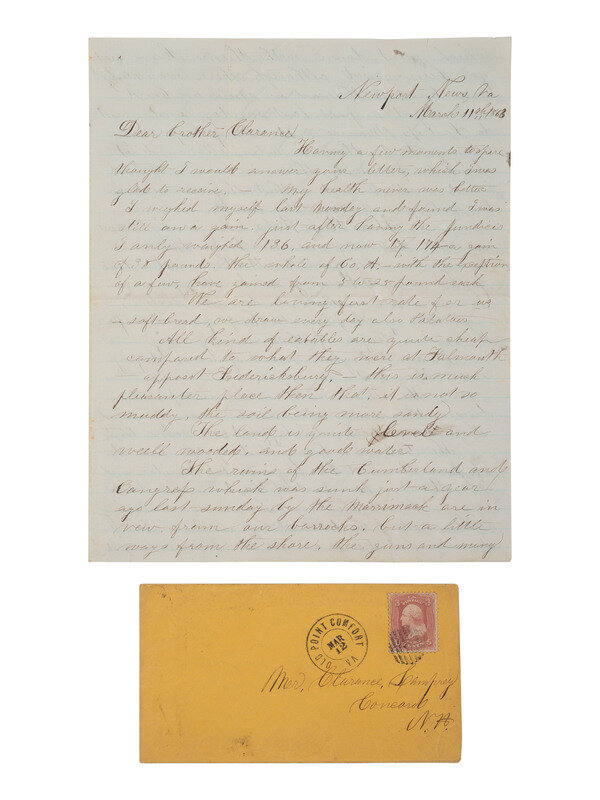 Newport News, Va
March 11th, 1863
Dear brother Clarence
Having a few moments to spare
thought I would answer your letter, which I was
glad to receive, — My health never was better
I weighed myself last Monday and found I was
still on a gain, just after having the Jundice
I only weighed 136, and now I 174 a gain
of 38 pounds. the whole of Co, A — with the exception
of a few, have gained from 5 to 25 pound each
We are living first rate for us
soft bread, we draw every day also Patatoes
All kind of eatables are quite cheap
compared to what they were at Falmouth
apposit Fredericksburg, — this is much
pleasanter place than that, it is not so
muddy, the soil being more sandy
The land is quite level and
well wooded, and good water
The ruins of the Cumberland and
Congress which was sunk just a year
ago last sunday by the Marrimack are in
view, from our barracks, but a little
ways from the shore, the guns and many
OLD POINT COMFORT
MAR
12
VA
Mr. Clarence, Lamprey
Concord
N.H.